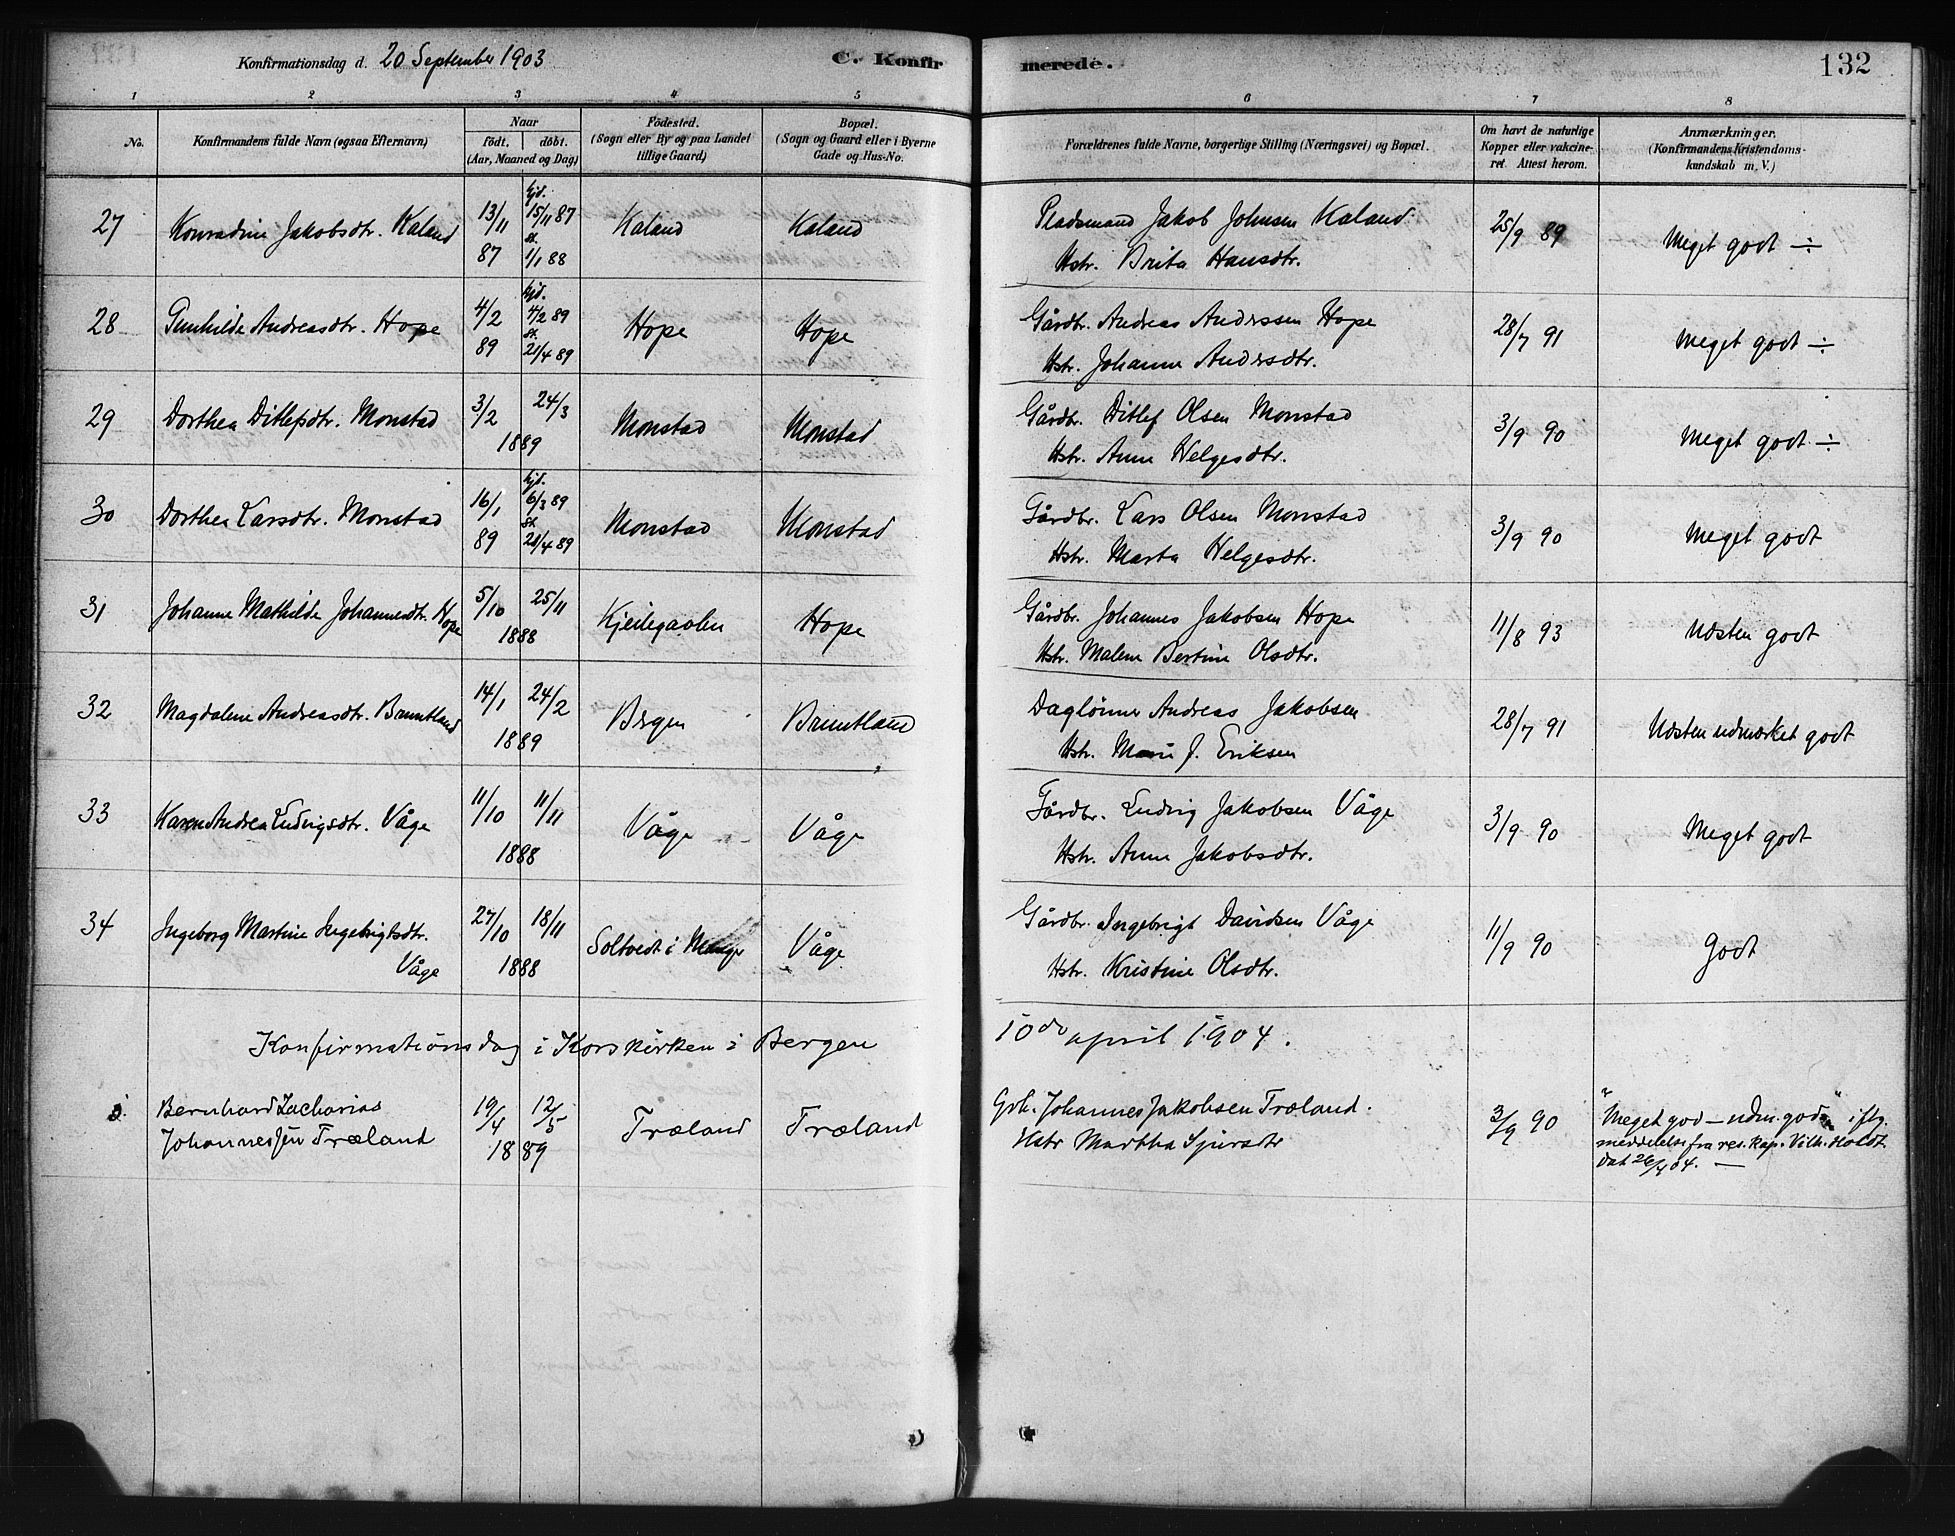 Konfirmationsdag d. 20 September 1903 C. Konfirmerede. 132
1 2 3 4 5 6 7 8
No. Konfirmandens fulde Navn (ogsaa Efternavn) Naar födt. döbt. (Aar, Maaned og Dag) Födested. (Sogn eller By og paa Landet tillige Gaard) Bopæl. (Sogn og Gaard eller i Byerne Gade og Hus-No. Forældrenes fulde Navne, borgerlige Stilling (Næringsvei) og Bopæl. Om havt de naturlige Kopper eller vakcineret. Attest herom. Anmærkninger. (Konfirmandens Kristendomskundskab m. V.)
27 Konradine Jakobsdtr. Kaland 13/11 87 hjd. 15/11 87 st. 1/1 88 Kaland Kaland Pladsmand Jakob Johnsen Kaland 25/9 89 Meget godt ÷
Hstr. Brita Hansdtr.
28 Gunhilde Andreasdtr. Hope 4/2 89 hjd. 4/2 89 St. 21/4 89 Hope Hope Gårdbr. Andreas Anderssen Hope 28/7 91 Meget godt ÷
Hstr. Johanne Andersdtr.
29 Dorthea Ditlefsdtr. Monstad 3/2 24/3 1889 Monstad Monstad Gårdbr. Ditlef Olsen Monstad 3/9 90 Meget godt ÷
Hstr. Anna Helgesdtr.
30 Dorthea Larsdtr. Monstad 16/1 89 hjd. 6/3 89 St. 21/4 89 Monstad Monstad Gårdbr. Lars Olsen Monstad 3/9 90 Meget godt
Hstr. Marta Helgesdtr.
31 Johanne Mathilde Johannesdtr. Hope 5/10 25/11 1888 Kjeilegavlen Hope Gårdbr. Johannes Jakobsen Hope 11/8 93 Næsten godt
Hstr. Malene Bertine Olsdtr.
32 Magdalene Andreasdtr. Bruntland 14/1 24/2 1889 Bergen Bruntland Daglønner Andreas Jakobsen 28/7 91 Næsten udmærket godt
Hstr. Marie J. Eriksen
33 Karen Andrea Ludvigsdtr. Våge 11/10 11/11 1888 Våge Våge Gårdbr. Ludvig Jakobsen Våge 3/9 90 Meget godt
Hstr. Anna Jakobsdtr.
34 Ingeborg Martine Ingebrigtsdtr. Våge 27/10 18/11 1888 Soltvedt i Manger Våge Gårdbr. Ingebrigt Davidsen Våge 11/9 90 Godt
Hstr. Kristine Olsdtr.
Konfirmationsdag i Korskirken i Bergen 10de april 1904.
Bernhard Zacharias 19/4 12/5 Træland Træland Grb. Johannes Jakobsen Træland. 3/9 90 "Meget god – udm. god" iflg.
Johannessen Træland 1889 Hstr Martha Sjursdtr meddelelse fra res. kap. Vilh. Holdt
dat 26/4 04. —